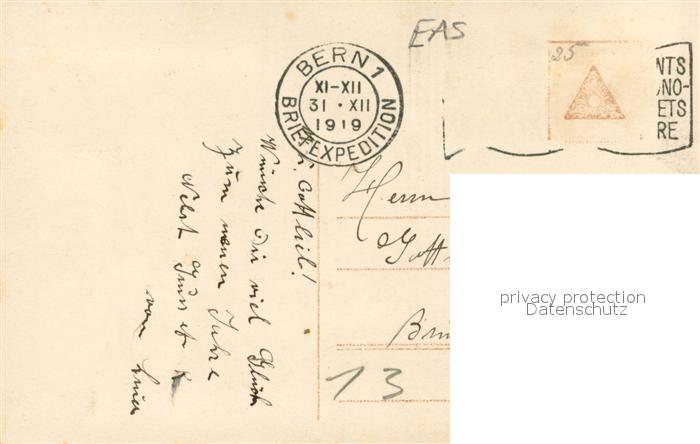 EAS
25
BERN 1
XI-XII
31 · XII
1919
BRIEFEXPEDITION
NTS
NO-
ETS
RE
L. Gottlieb!
Wünsche Dir viel Glück
Zum neuen Jahre
Nebst Gruss
von
Herrn
Gott
13
privacy protection
Datenschutz